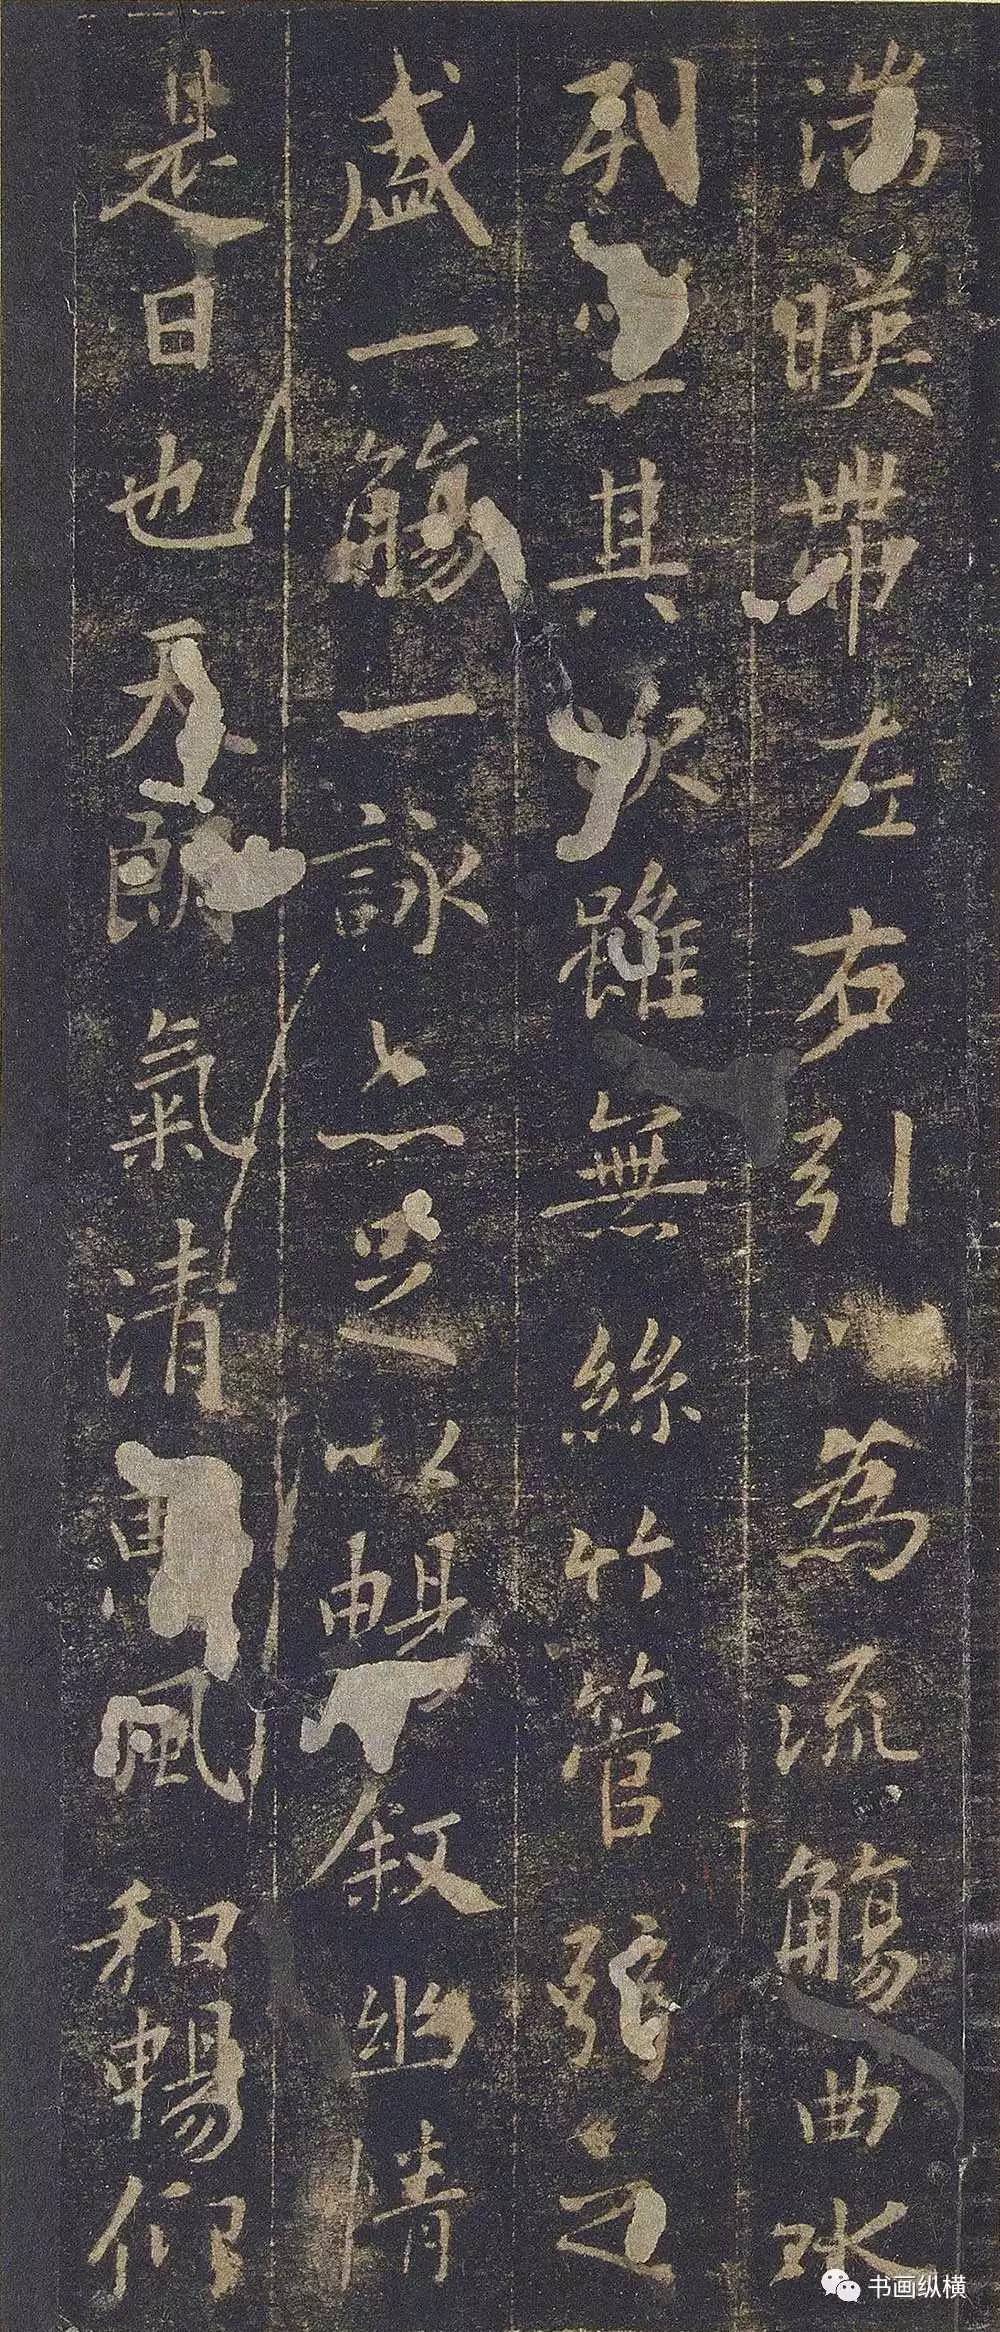 湍暎帶左右引以為流觴曲水
列坐其次雖無絲竹管弦之
盛一觴一詠亦足以暢敘幽情
是日也天朗氣清惠風和暢仰
书画纵横